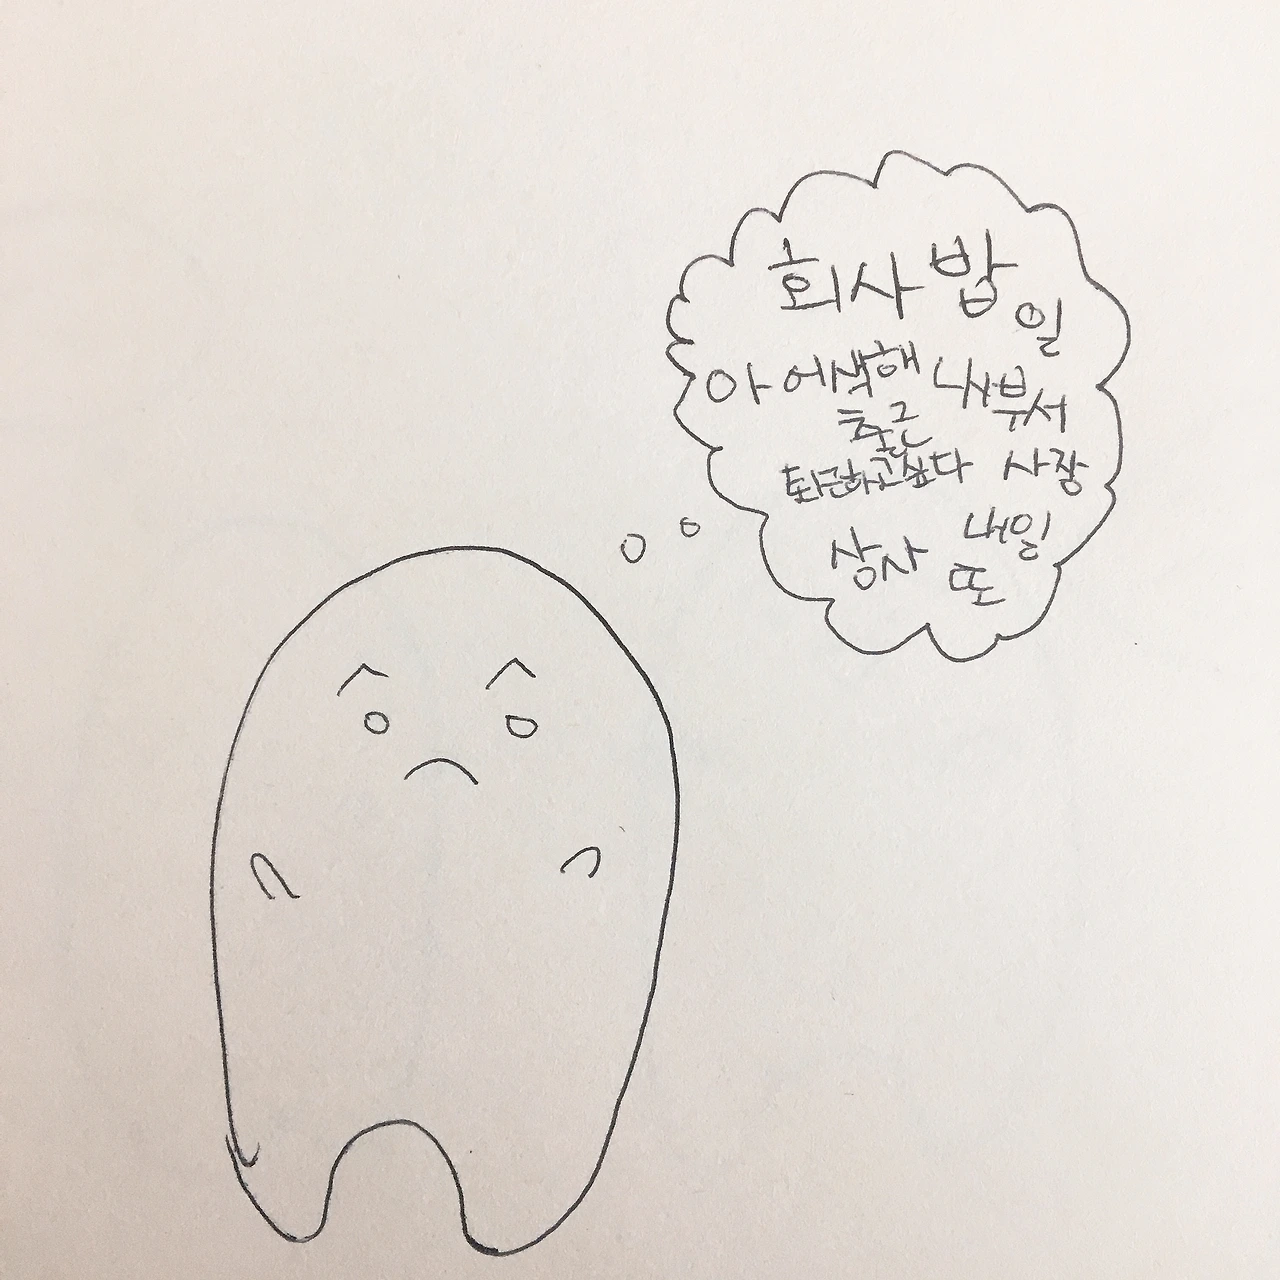 회사 밥
일
아 어색해 내부서
출근
퇴근하고싶다 사장
상사 내일
또